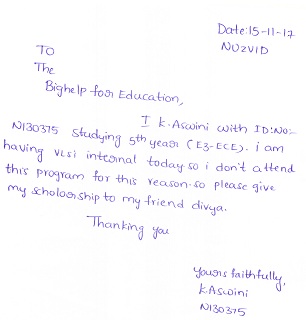 Date:15-11-17
NUZVID
TO
The
Bighelp for Education,
I K.Aswini with ID:No:-
N130375 studying 5th year (E3-ECE). i am
having VLSI internal today so i don't attend
this program for this reason. so please give
my scholorship to my friend divya.
Thanking you
Yours faithfully,
K.Aswini
N130375